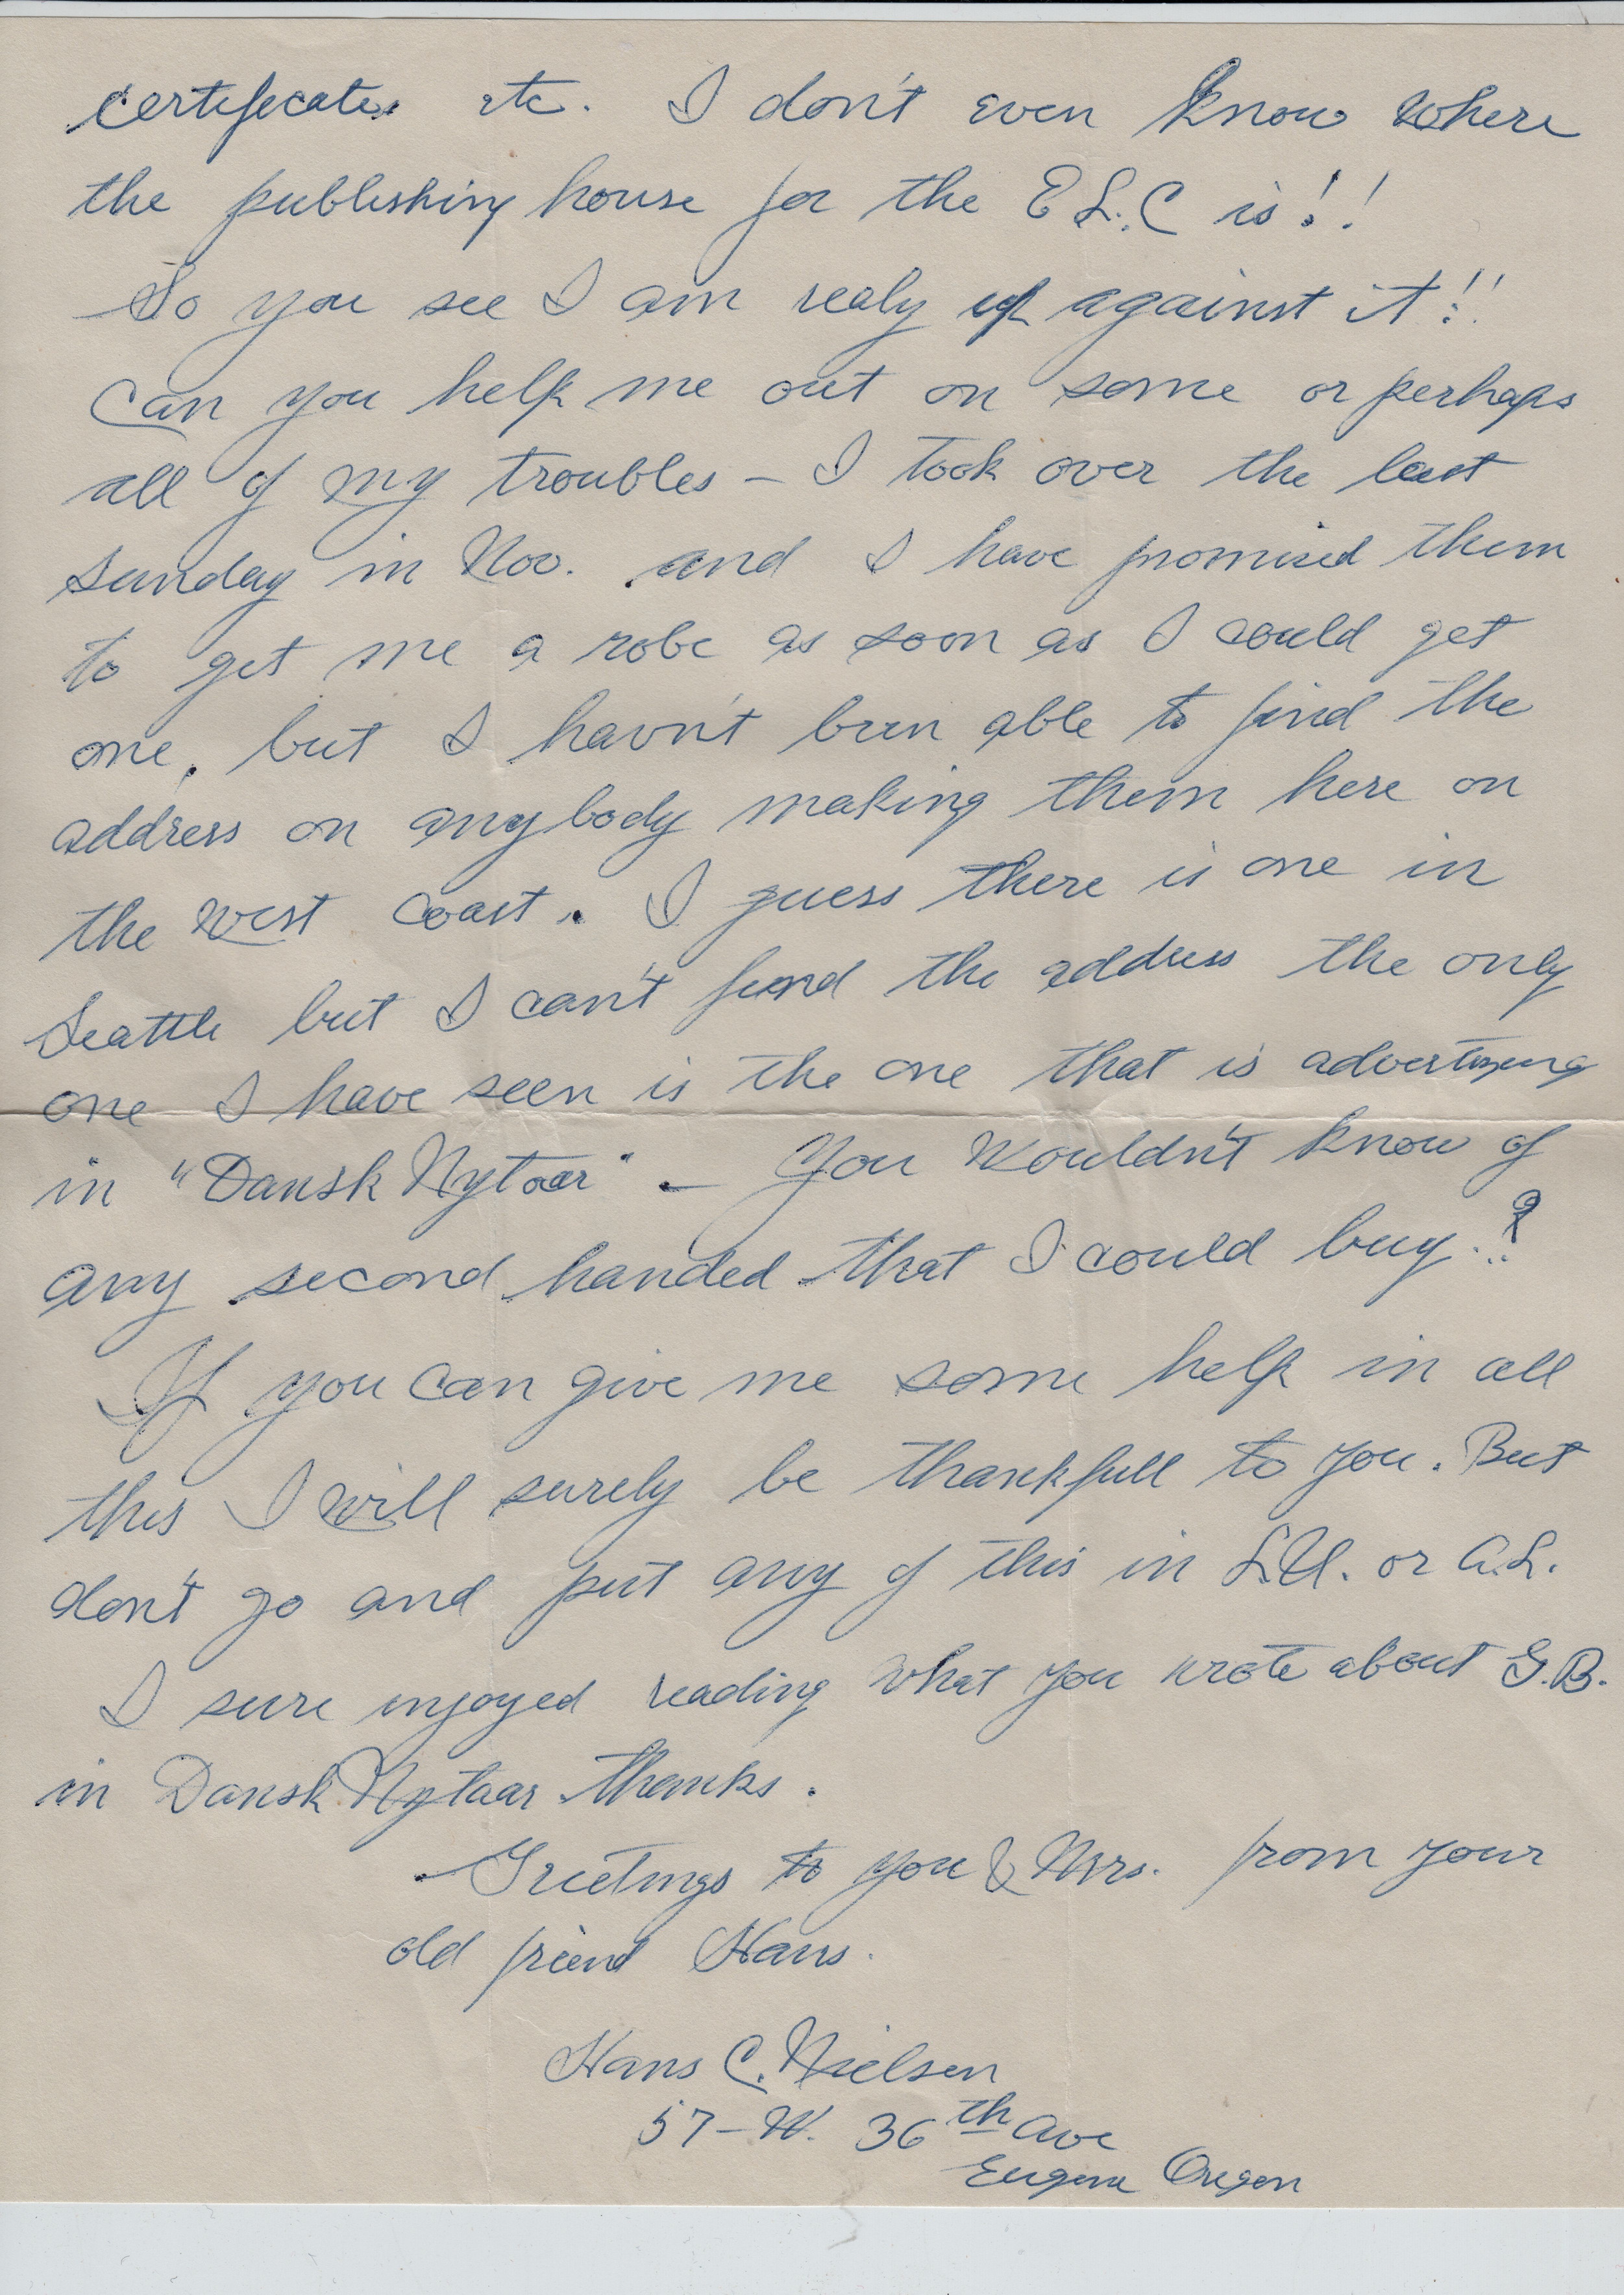 certificates etc. I don't even know where
the publishing house for the E L.C is!!
So you see I am realy up against it!!
Can you help me out on some or perhaps
all of my troubles – I took over the last
sunday in Nov. and I have promised them
to get me a robe as soon as I could get
one, but I havn't been able to find the
address on anybody making them here on
the west coast. I guess there is one in
Seattle but I can't find the address the only
one I have seen is the one that is advertizing
in "Dansk Nytaar" – You wouldn't know of
any second handed that I could buy.?
If you can give me some help in all
this I will surely be thankfull to you. But
don't go and put any of this in L.U. or A.L.
I sure injoyed reading what you wrote about G.B.
in Dansk Nytaar thanks.
Greetings to you & Mrs. from your
old friend Hans.
Hans C. Nielsen
57–W. 36th Ave
Eugene Oregon